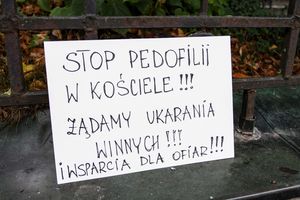 STOP PEDOFILII
W KOŚCIELE !!!
ŻĄDAMY UKARANIA
WINNYCH !!!
I WSPARCIA DLA OFIAR!!!